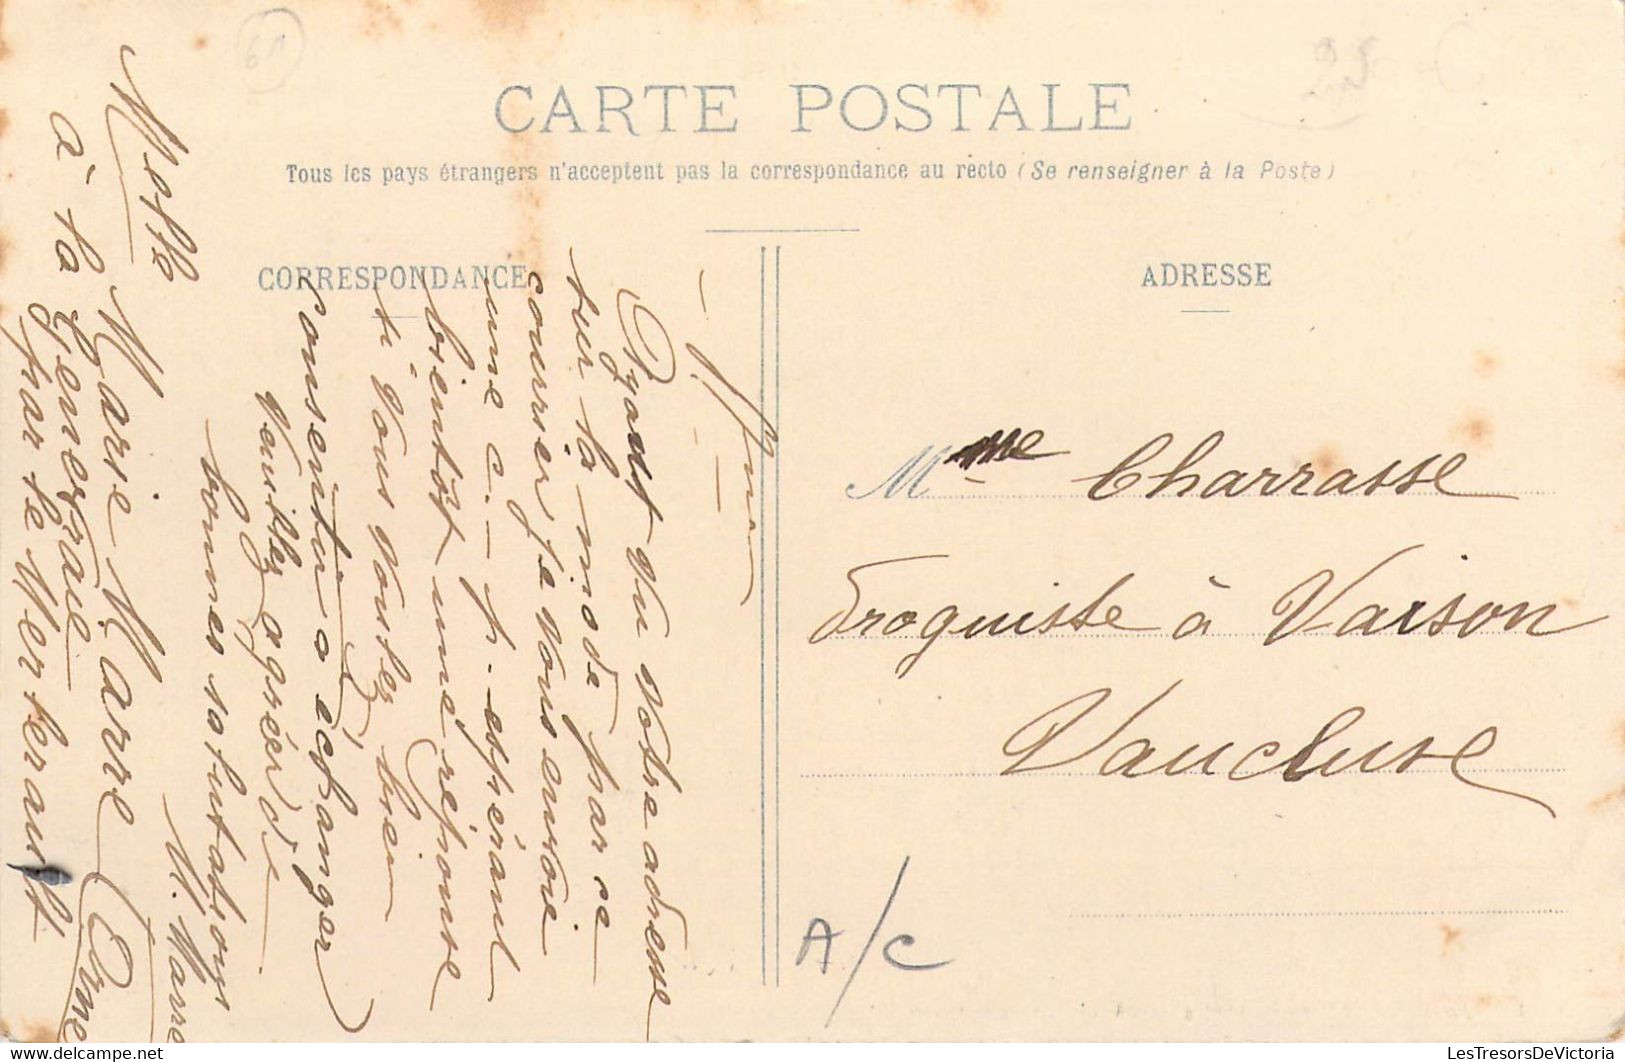 CARTE POSTALE
Tous les pays étrangers n'acceptent pas la correspondance au recto (Se renseigner à la Poste)
CORRESPONDANCE
ADRESSE
Ayant vu votre adresse
sur la mode par ce
courrier je vous envoie
une c. - p. espérant
bientôt une réponse
si vous voulez bien
consentir a échanger
Veuillez agréer de
bonnes salutations
M. Marre
Melle Marie Marre
à la Genevraie Orne
par le Merlerault
Mme Charrasse
droguiste à Vaison
Vaucluse
A/C
61
LesTresorsDeVictoria
www.delcampe.net